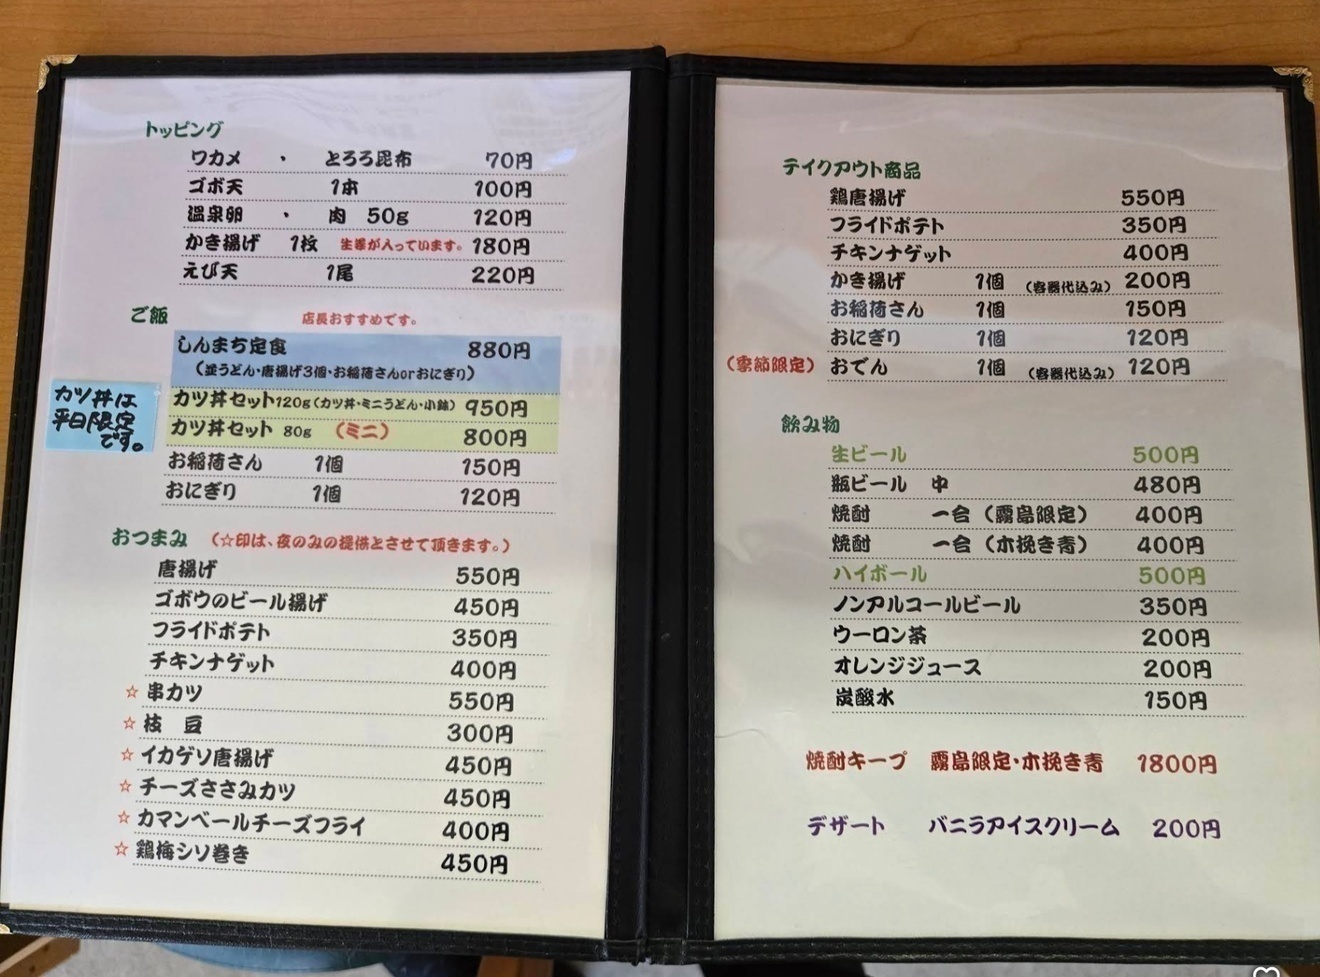 トッピング
ワカメ ・ とろろ昆布 70円
ゴボ天 1本 100円
温泉卵 ・ 肉 50g 120円
かき揚げ 1枚 生姜が入っています。 180円
えび天 1尾 220円
ご飯 店長おすすめです。
しんまち定食 880円
(並うどん・唐揚げ3個・お稲荷さんorおにぎり)
カツ丼は
平日限定
です。
カツ丼セット120g(カツ丼・ミニうどん・小鉢) 950円
カツ丼セット 80g (ミニ) 800円
お稲荷さん 1個 150円
おにぎり 1個 120円
おつまみ (☆印は、夜のみの提供とさせて頂きます。)
唐揚げ 550円
ゴボウのビール揚げ 450円
フライドポテト 350円
チキンナゲット 400円
☆ 串カツ 550円
☆ 枝 豆 300円
☆ イカゲソ唐揚げ 450円
☆ チーズささみカツ 450円
☆ カマンベールチーズフライ 400円
☆ 鶏梅シソ巻き 450円
テイクアウト商品
鶏唐揚げ 550円
フライドポテト 350円
チキンナゲット 400円
かき揚げ 1個 (容器代込み) 200円
お稲荷さん 1個 150円
おにぎり 1個 120円
(季節限定) おでん 1個 (容器代込み) 120円
飲み物
生ビール 500円
瓶ビール 中 480円
焼酎 一合(霧島限定) 400円
焼酎 一合(木挽き青) 400円
ハイボール 500円
ノンアルコールビール 350円
ウーロン茶 200円
オレンジジュース 200円
炭酸水 150円
焼酎キープ 霧島限定・木挽き青 1800円
デザート バニラアイスクリーム 200円